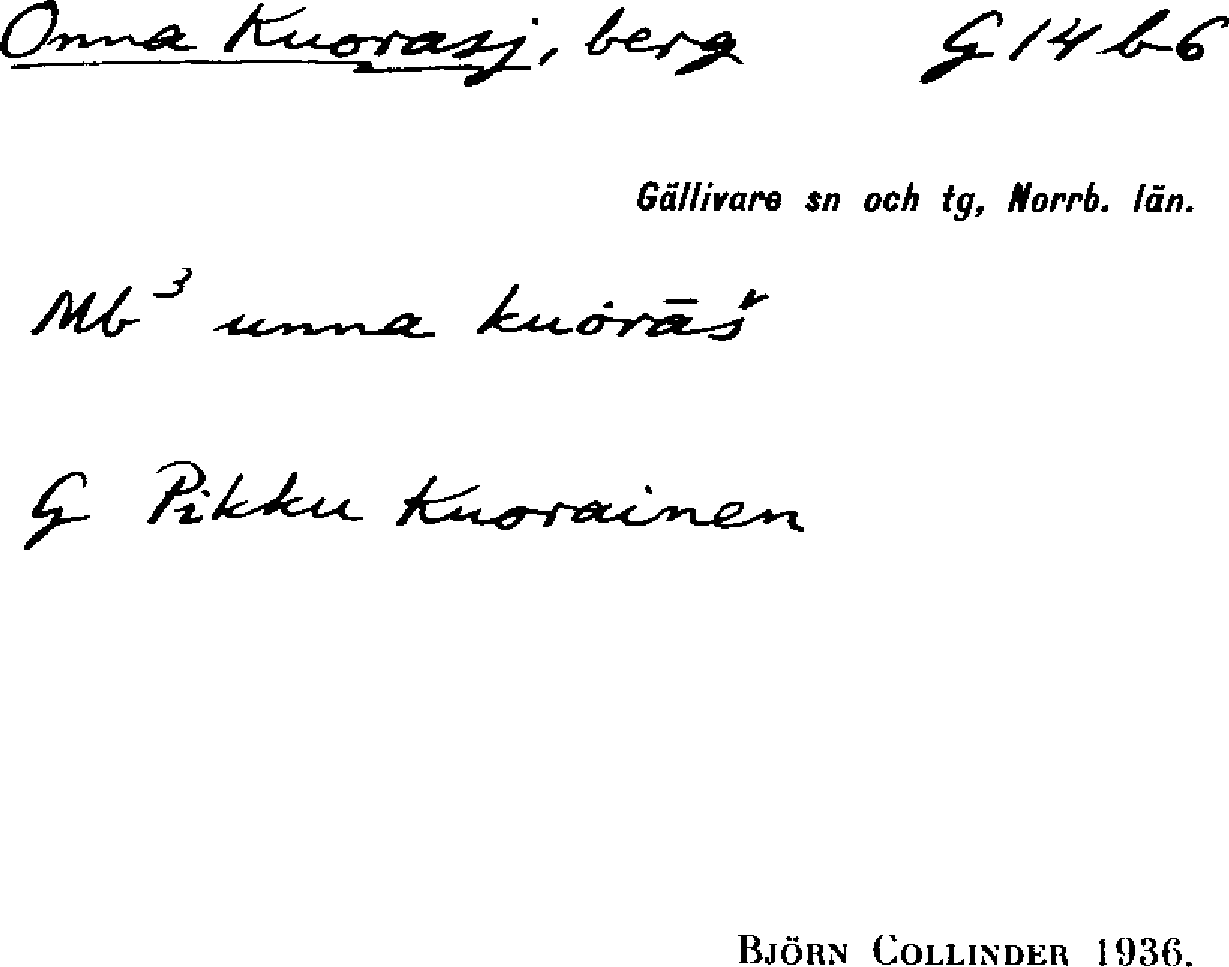 Onna Kuorasj, berg G 14 b 6
Gällivare sn och tg, Norrb. län.
Mb³ unna kuȯrāš
G Pikku Kuorainen
BJÖRN COLLINDER 1936.